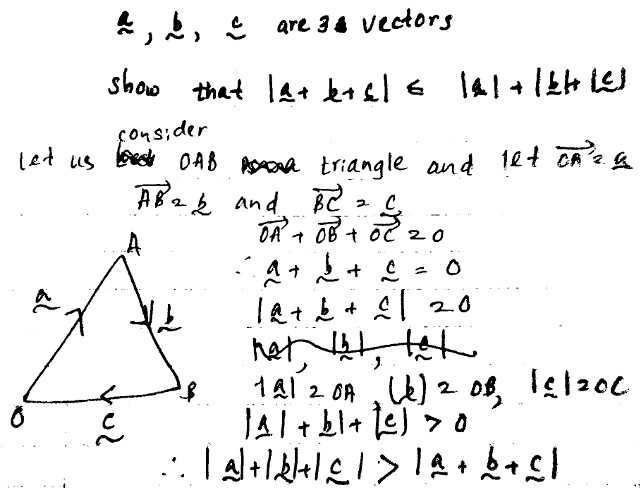 a, b, c are 3 vectors
show that |a + b + c| ≤ |a| + |b| + |c|
consider
Let us OAB triangle and let OA = a
AB = b and BC = c
OA + OB + OC = 0
∴ a + b + c = 0
|a + b + c| = 0
|a|, |b|, |c|
|a| = OA, |b| = OB, |c| = OC
|a| + |b| + |c| > 0
∴ |a| + |b| + |c| > |a + b + c|
A
a
b
O
B
c